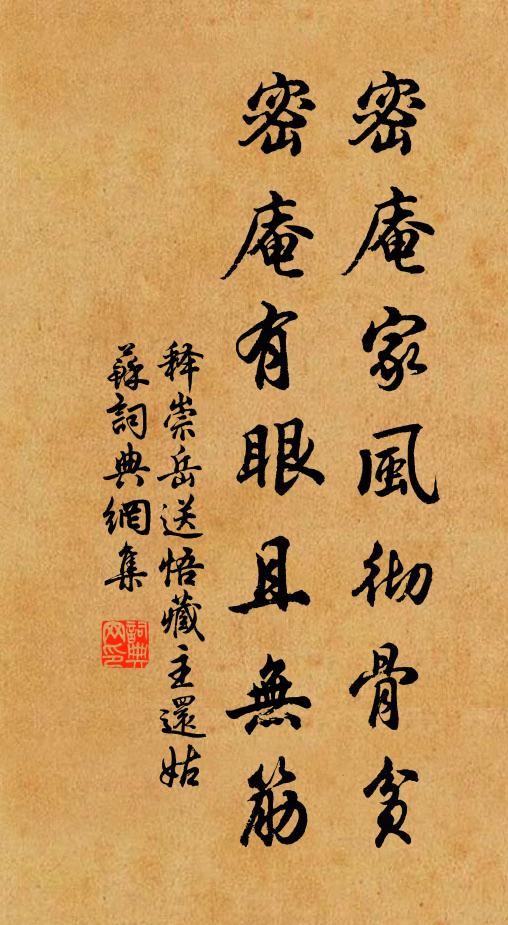 密庵家風彻骨貧
密庵有眼且無筋
释崇岳送悟藏主還姑
蘇詞典網集
詞典网印